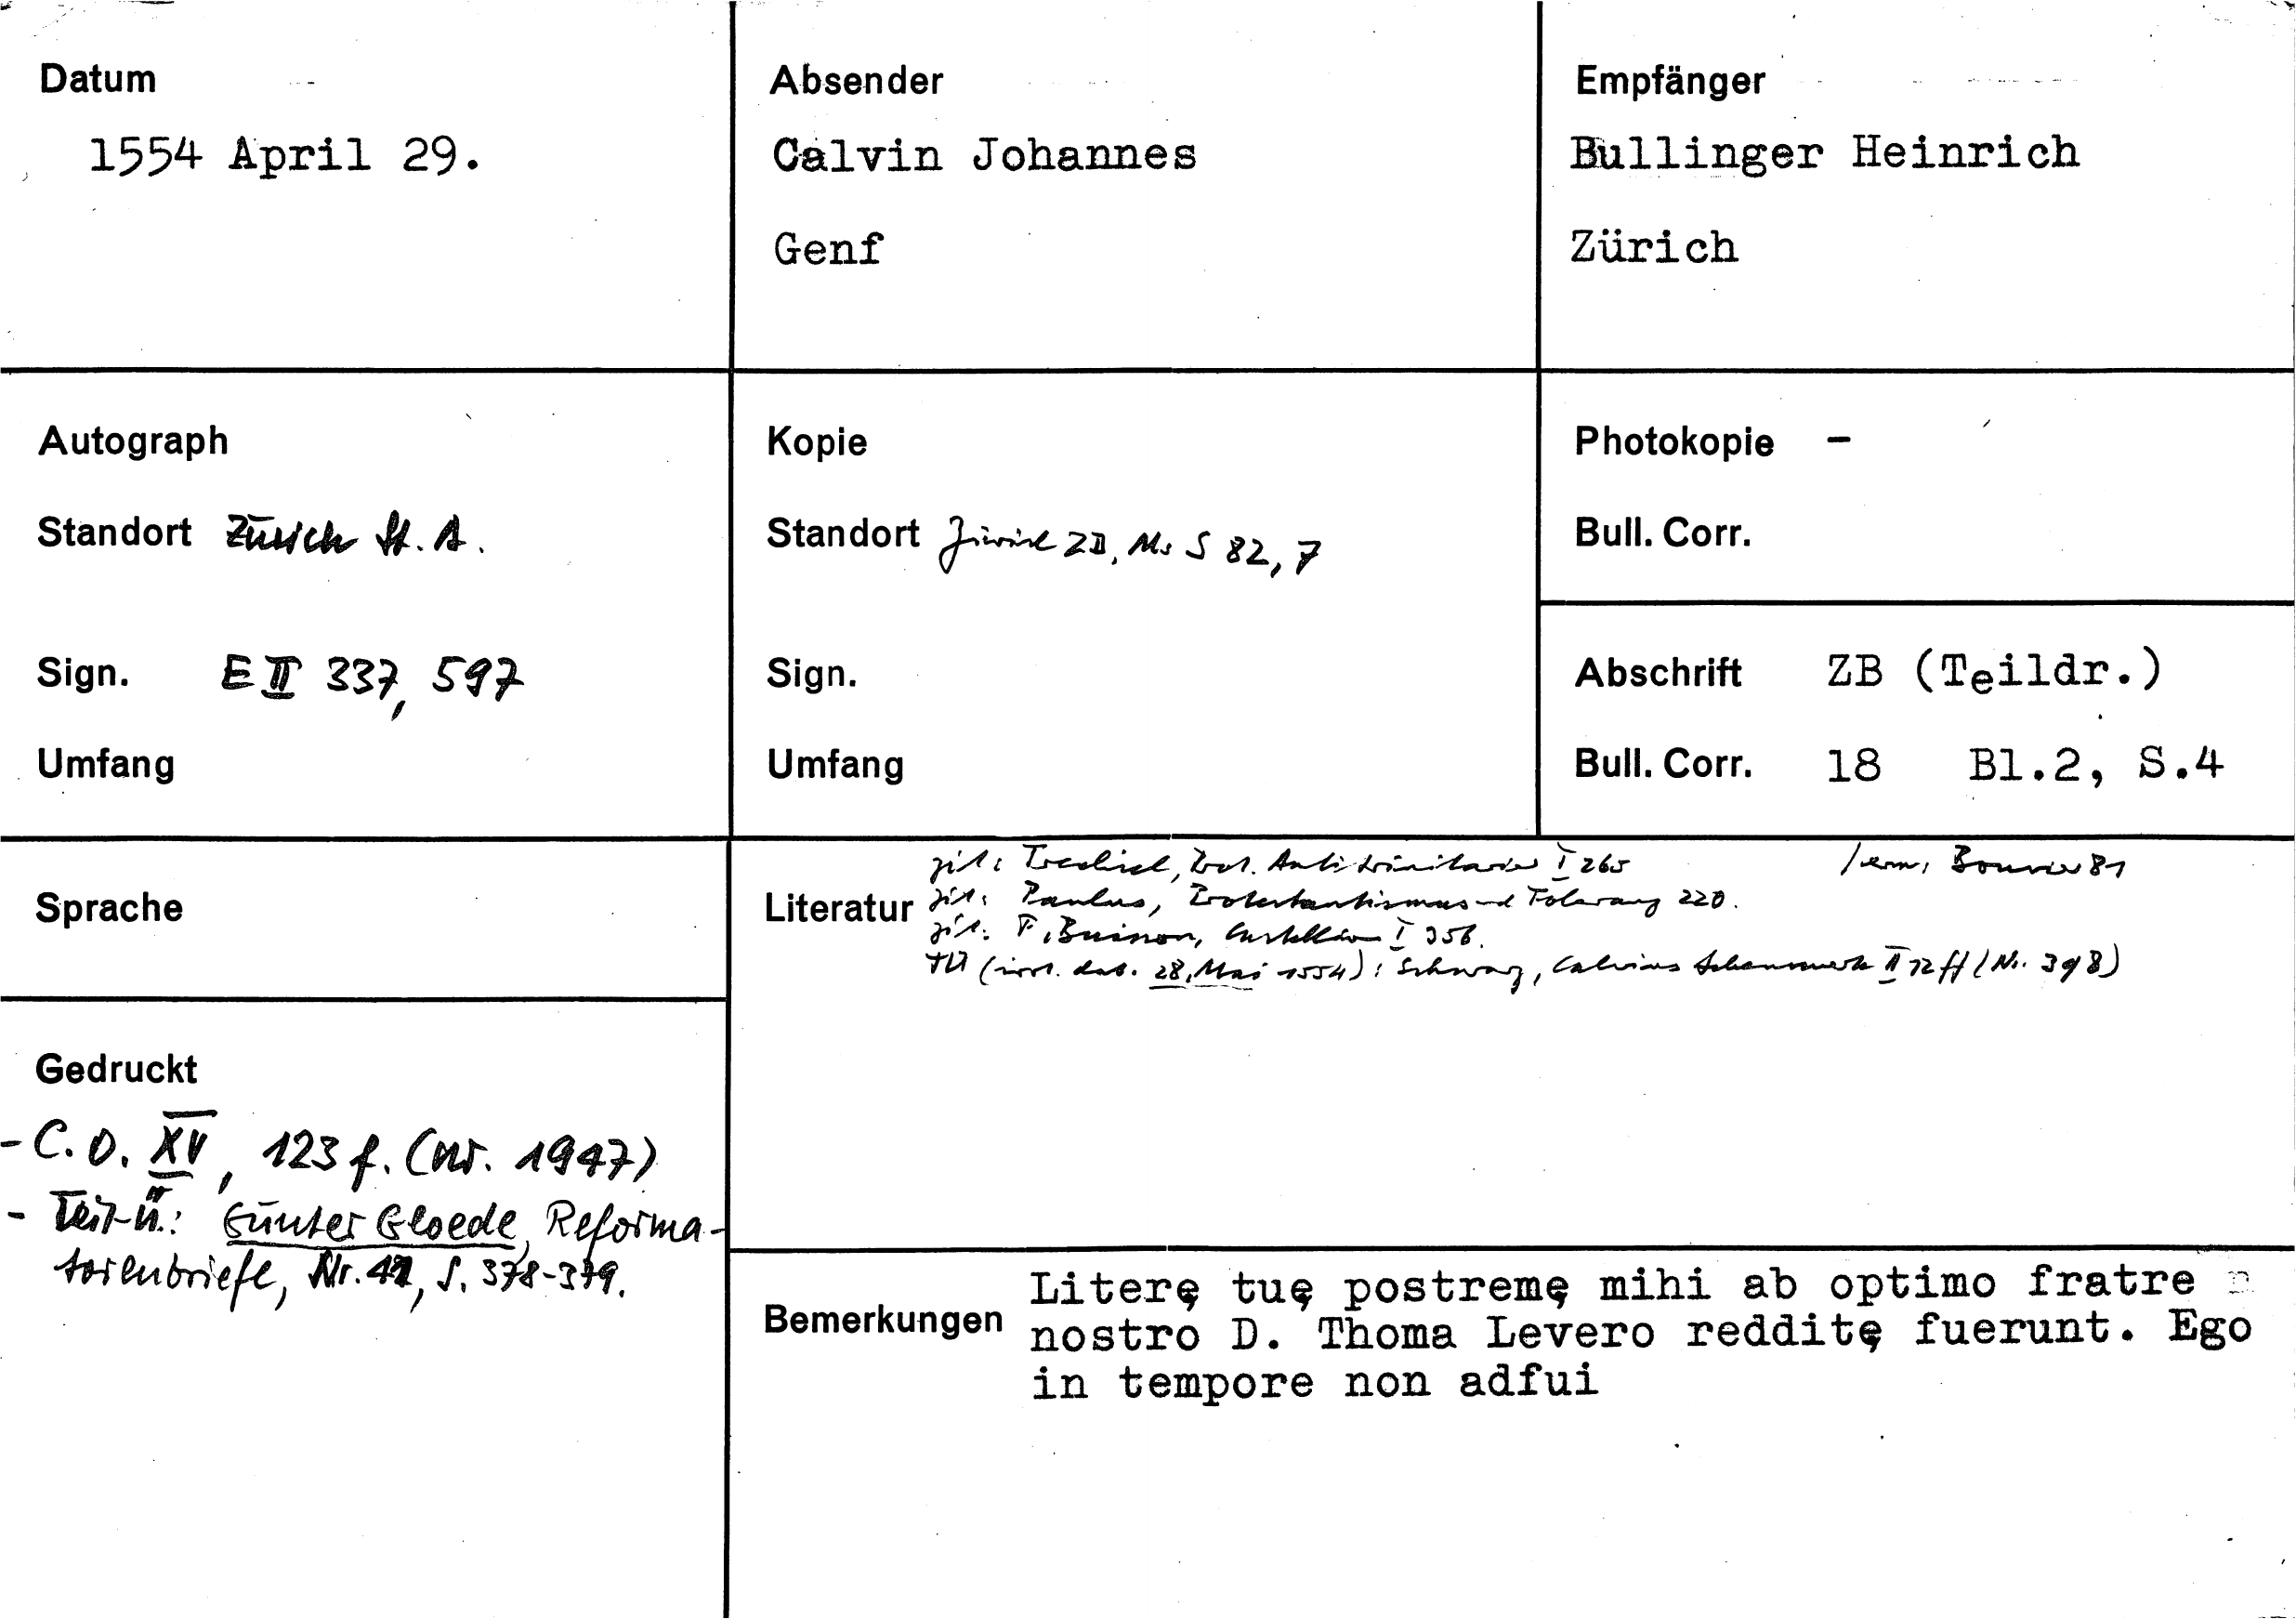 Datum
1554 April 29.
Absender
Calvin Johannes
Genf
Empfänger
Bullinger Heinrich
Zürich
Autograph
Standort Zürich St. A.
Sign. E II 337, 597
Umfang
Kopie
Standort Zürich ZB, Ms S 82, 7
Sign.
Umfang
Photokopie -
Bull. Corr.
Abschrift ZB (Teildr.)
Bull. Corr. 18 Bl.2, S.4
Sprache
Gedruckt
- C.O. XV, 123 f. (Nr. 1947)
- Teil-ü.: Günter Gloede, Reforma-
torenbriefe, Nr. S. 378-379.
Literatur
zit: Trechsel, Prot. Antitrinitarier I 265
erw: Bouvier 81
zit: Paulus, Protestantismus und Toleranz 220.
zit: F. Buisson, Castellion I 356.
TÜ (irrt. dat. 28. Mai 1554): Schwarz, Calvins Lebenswerk II 72 ff (Nr. 398)
Bemerkungen
Literę tuę postremę mihi ab optimo fratre
nostro D. Thoma Levero redditę fuerunt. Ego
in tempore non adfui